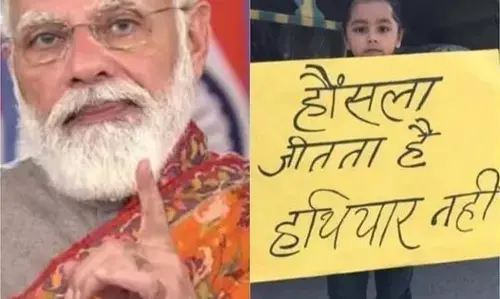 हौंसला
जीतता है
हथियार नही